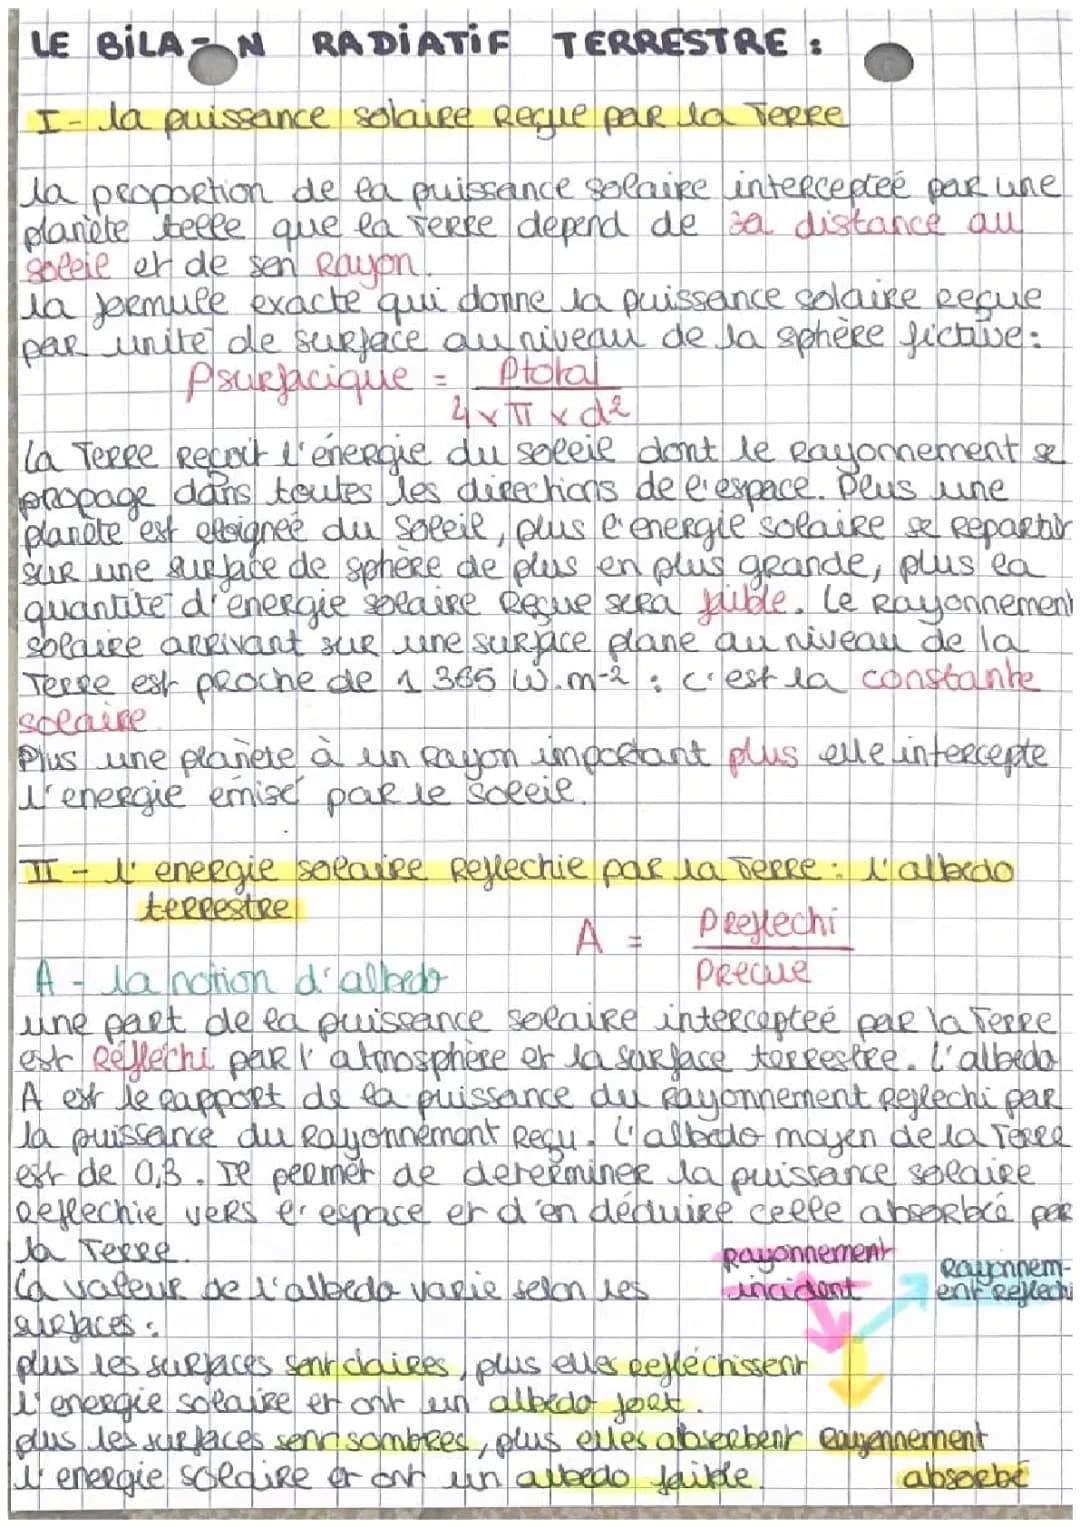 LE BiLA-N RADiATiF TERRESTRE :
I - la puissance solaire Reçue par la Terre
la proportion de la puissance solaire interceptée par une
planète telle que la Terre depend de sa distance au
soleil et de son Rayon.
la formule exacte qui donne la puissance solaire reçue
par unité de surface au niveau de la sphère fictive :
Psurfacique = Ptotal
4 x π x d²
La Terre reçoit l'énergie du soleil dont le rayonnement se
propage dans toutes les directions de l'espace. Plus une
planète est eloignée du soleil, plus l'energie solaire se repartir
sur une surface de sphère de plus en plus grande, plus la
quantité d'énergie solaire reçue sera faible. Le Rayonnement
solaire arrivant sur une surface plane au niveau de la
Terre est proche de 1 365 W.m-2 : c'est la constante
solaire.
Plus une planète à un rayon important plus elle intercepte
l'energie émise par le soleil.
II - l'energie solaire Reflechie par la Terre : l'albedo
terrestre
A = Preflechi
Precue
A - la notion d'albedo
une part de la puissance solaire interceptée par la Terre
est Réfléchi par l'atmosphère et la surface terrestre. L'albedo
A est le rapport de la puissance du rayonnement reflechi par
la puissance du Rayonnement Reçu. L'albedo moyen de la Terre
est de 0,3. Il permet de determiner la puissance solaire
reflechie vers l'espace et d'en déduire celle absorbée par
la Terre.
La valeur de l'albedo varie selon les
surfaces :
Rayonnement
incident
Rayonnem-
ent Reflechi
plus les surfaces sont claires, plus elles refléchissent
l'energie solaire et ont un albedo fort.
plus les surfaces sont sombres, plus elles absorbent
l'energie solaire et ont un albedo faible.
Rayonnement
absorbé